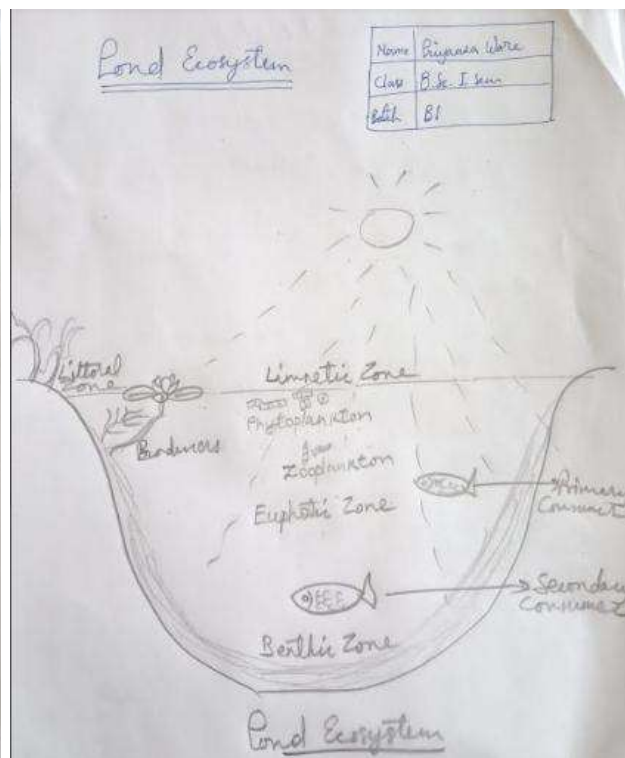 Pond Ecosystem
Name Priyansa Ware
Class B.Sc. I Sem
Batch B1
Littoral
Zone
Limnetic Zone
Phytoplankton
Producers
Zooplankton
Euphotic Zone
Primary
Consumer
Secondary
Consumer
Benthic Zone
Pond Ecosystem